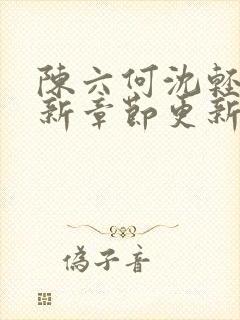 陳六何沈輕
新章節更新
偽子音